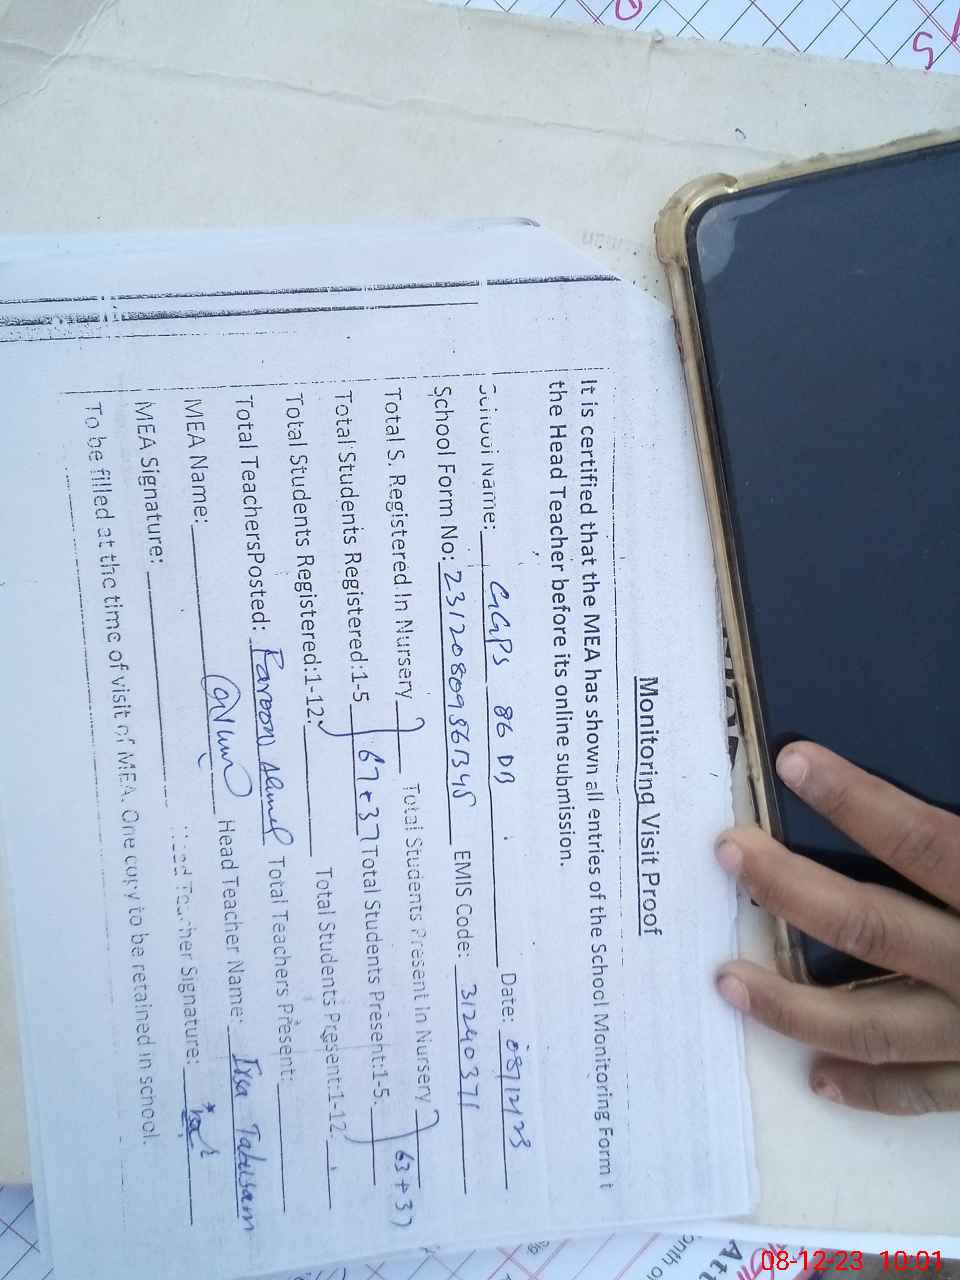 Monitoring Visit Proof
It is certified that the MEA has shown all entries of the School Monitoring Form t
the Head Teacher before its online submission.
School Name: GGPS 86 DB Date: 08/12/23
School Form No: EMIS Code: 31240371
Total S. Registered In Nursery Total Students Present In Nursery
Total Students Registered:1-5 67+37 Total Students Present:1-5 63+37
Total Students Registered:1-12: Total Students Present:1-12
Total TeachersPosted: Total Teachers Present:
MEA Name: Head Teacher Name:
MEA Signature: Head Teacher Signature:
To be filled at the time of visit of MEA. One copy to be retained in school.
08-12-23 10:01